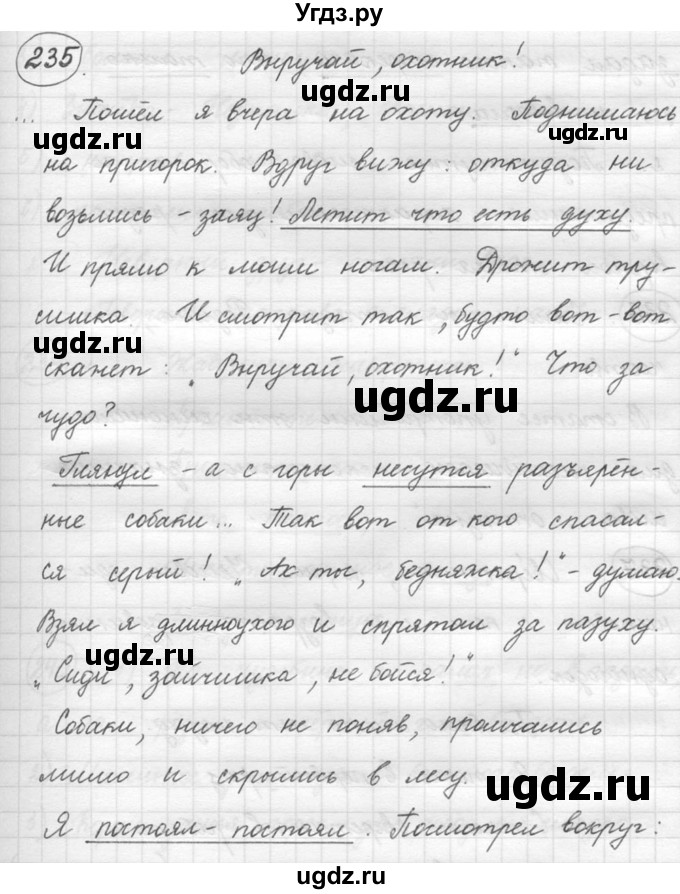 Угдз.ру
235. Выручай, охотник!
... Пошёл я вчера на охоту. Поднимаюсь
ugdz.ru ugdz.ru
на пригорок. Вдруг вижу: откуда ни
возьмись - заяц! Летит что есть духу
И прямо к моим ногам. Дрожит тру-
ugdz.ru
сишка. И смотрит так, будто вот-вот
скажет: "Выручай, охотник!" Что за
ugdz.ru
чудо?
Глянул - а с горы несутся разъярён-
ные собаки... Так вот от кого спасал-
ugdz.ru ugdz.ru
ся серый! "Ах ты, бедняжка!" - думаю.
Взял я длинноухого и спрятал за пазуху.
ugdz.ru
"Сиди, зайчишка, не бойся!"
Собаки, ничего не поняв, промчались
мимо и скрылись в лесу.
ugdz.ru
Я постоял-постоял. Посмотрел вокруг:
ugdz.ru